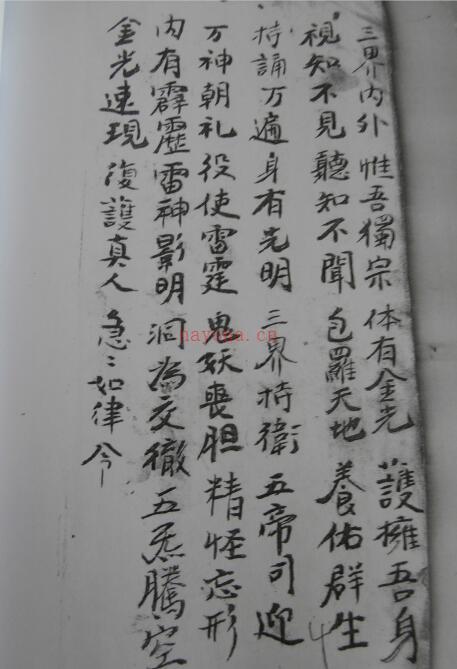 三界内外 惟吾獨宗 体有金光 護擁吾身
視知不見 聽知不聞 包羅天地 養佑群生
持誦万遍 身有光明 三界持衛 五帝司迎
万神朝礼 役使雷霆 鬼妖喪胆 精怪忘形
内有霹靂 雷神影明 洞為交徹 五炁騰空
金光速現 復護真人 急〻如律令